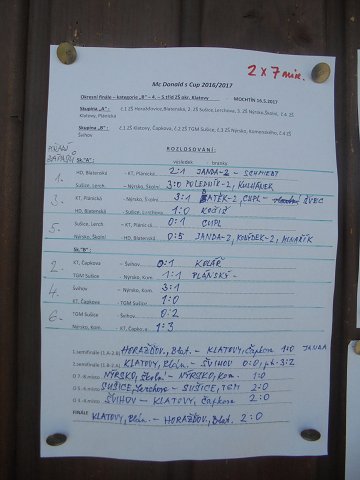 2 x 7 min.
Mc Donald s Cup 2016/2017
Okresní finále – kategorie „B" – 4. – 5. tříd ZŠ okr. Klatovy MOCHTÍN 16.5.2017
Skupina „A" : č.1 ZŠ Horažďovice, Blatenská, č. 2 ZŠ Sušice, Lerchova, č. 3 ZŠ Nýrsko, Školní č.4 ZŠ Klatovy, Plánická
Skupina „B" : č.1 ZŠ Klatovy, Čapkova, č.2 ZŠ TGM Sušice, č. 3 ZŠ Nýrsko, Komenského, č.4 ZŠ Švihov
ROZLOSOVÁNÍ:
POŘADÍ ZÁPASŮ
Sk."A": výsledek - branky
1. HD, Blatenská - KT, Plánická 2:1 JANDA-2 - SCHMIEDT
Sušice, Lerch. - Nýrsko, Školní 3:0 POLEDNÍK-2, KULHÁNEK
3. KT, Plánická - Nýrsko, Školní 3:1 CUPL - ŠVEC
HD, Blatenská - Sušice, Lerchova 1:0
5. Sušice, Lerch. - KT, Plánická 0:1 CUPL
Nýrsko, Školní - HD, Blatenská 0:5 JANDA-2,
Sk."B":
2. KT, Čapkova - Švihov 0:1 KOLÁŘ
TGM Sušice - Nýrsko, Kom. 1:1 PLÁNSKÝ -
4. Švihov - Nýrsko, Kom. 3:1
KT, Čapkova - TGM Sušice 1:0
6. TGM Sušice - Švihov 0:2
Nýrsko, Kom. - KT, Čapkova 1:3
1.semifinále (1.A-2.B) HORAŽĎOV., Blat. - KLATOVY, Čapkova 1:0 JANDA
2.semifinále (1.B-2.A) KLATOVY, Plán. - ŠVIHOV 0:0, pk. 3:2
O 7.-8.místo NÝRSKO, Školní - NÝRSKO, Kom. 1:0
O 5.-6.místo SUŠICE, Lerchova - SUŠICE, TGM 2:0
O 3.-4.místo ŠVIHOV - KLATOVY, Čapkova 2:0
FINÁLE KLATOVY, Plán. - HORAŽĎOV., Blat. 2:0